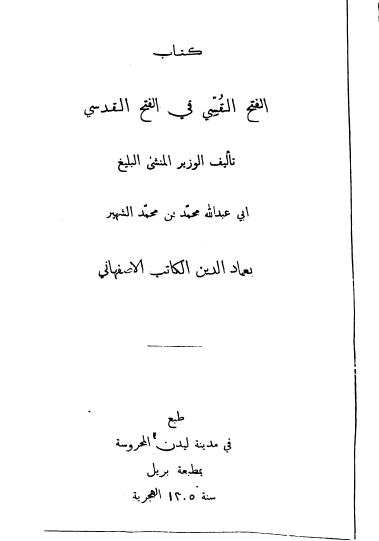 كتاب
الفتح القُسّي في الفتح القدسي
تأليف الوزير المنشئ البليغ
ابي عبدالله محمّد بن محمّد الشهير
بعماد الدين الكاتب الاصفهاني
طبع
في مدينة ليدن المحروسة
بمطبعة بريل
سنة ١٣٠٥ الهجرية